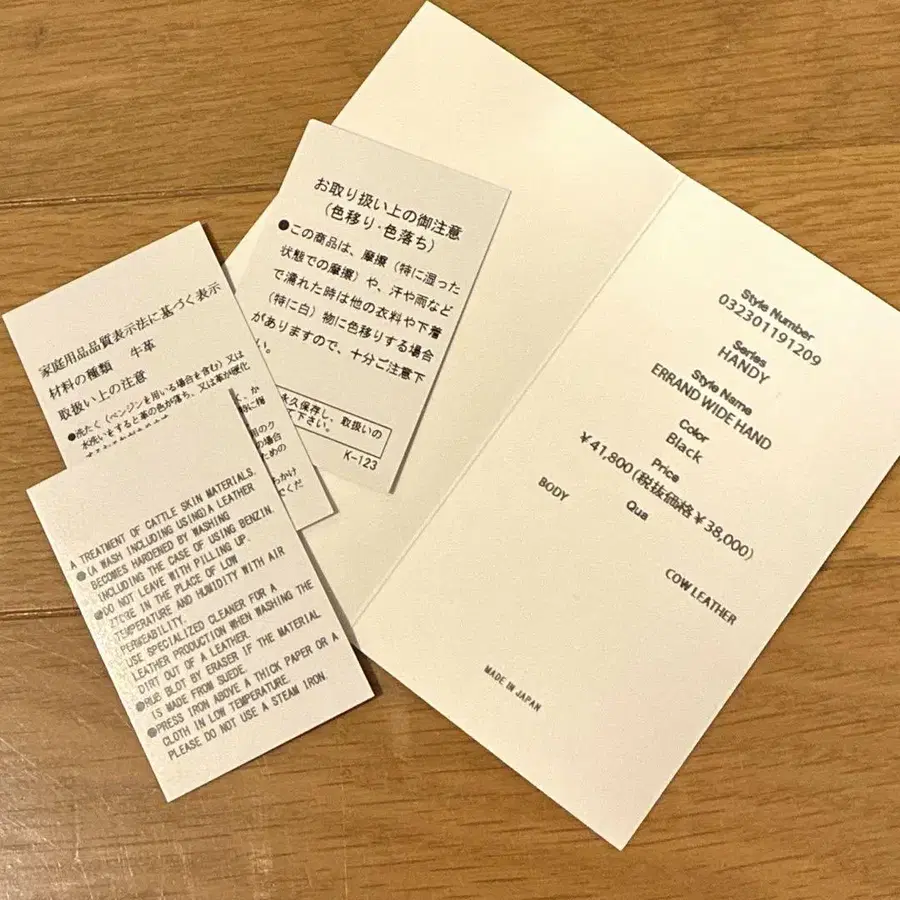 家庭用品品質表示法に基づく表示
材料の種類 牛革
取扱い上の注意
●洗たく(ベンジンを用いる場合を含む)又は
水洗いをすると革の色が落ち、又は革が硬化
お取り扱い上の御注意
(色移り・色落ち)
●この商品は、摩擦(特に湿った
状態での摩擦)や、汗や雨など
で濡れた時は他の衣料や下着
(特に白)物に色移りする場合
がありますので、十分ご注意下
い。
永久保存し、取扱いの
て下さい。
K-123
A TREATMENT OF CATTLE SKIN MATERIALS.
●(A WASH INCLUDING USING)A LEATHER
BECOMES HARDENED BY WASHING
(INCLUDING THE CASE OF USING BENZIN.
●DO NOT LEAVE WITH PILLING UP.
ZTCRE IN THE PLACE OF LOW
TEMPERATURE AND HUMIDITY WITH AIR
PERMEABILITY.
USE SPECIALIZED CLEANER FOR A
LEATHER PRODUCTION WHEN WASHING THE
DIRT OUT OF A LEATHER.
●RUB BLOT BY ERASER IF THE MATERIAL
IS MADE FROM SUEDE.
●PRESS IRON ABOVE A THICK PAPER OR A
CLOTH IN LOW TEMPERATURE.
PLEASE DO NOT USE A STEAM IRON.
Style Number
032301191209
Series
HANDY
Style Name
ERRAND WIDE HAND
Color
Black
Price
¥41,800(税抜価格¥38,000)
Qua
BODY
COW LEATHER
MADE IN JAPAN